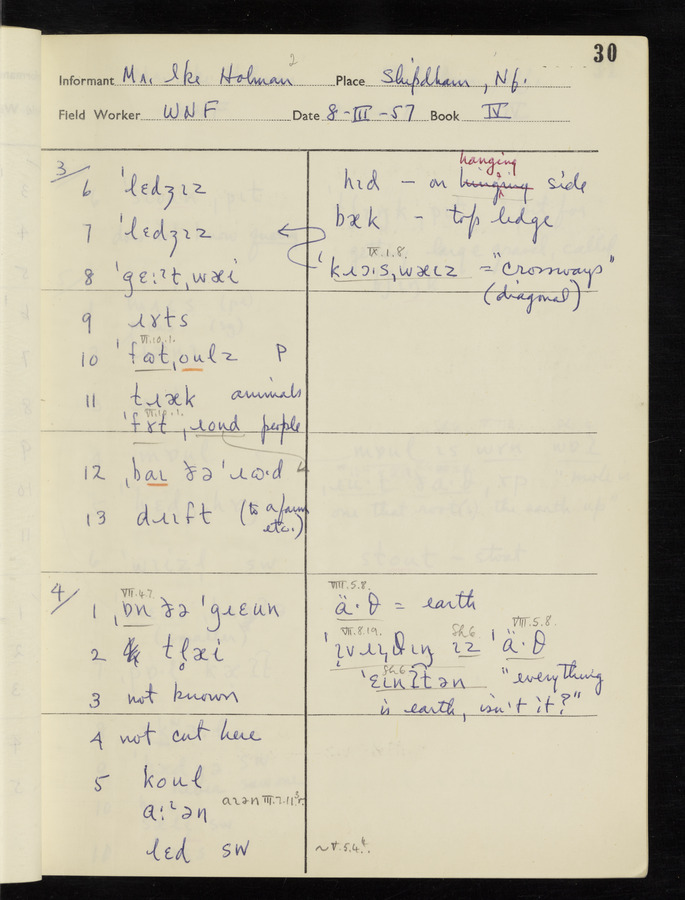 30
Informant Mr. Ike Holman 2 Place Shipdham, Nf.
Field Worker WNF Date 8-III-57 Book IV
3/
6 ˈledʒɪz
7 ˈledʒɪz
8 ˈgɛ:ˀt,wæi
9 ɹɤts
VI.10.1.
10 ˈfʊt,oulz P
11 tɹæk animals
VI.10.1.
ˈfɤt,ɹond people
12 ˌbaɪ ðə ˈɹʊ·d
13 dɹɪft (to a farm etc.)
hanging
hɪd – on hinging side
bæk – top ledge
IX.1.8.
ˈkɹɔ:s,wæɪz = "crossways"
(diagonal)
4/
VII.4.7.
1 ˌɒn ðə ˈgɹɛun
2 tl̥æi
3 not known
4 not cut here
5 koul
a:ˀən aɪən III.7.11
led SW
VIII.5.8.
ä·θ = earth
VII.8.19. Sh6. VIII.5.8.
ɪz ˈä·θ
Sh6.
"everything
is earth, isn't it?"
~V.5.4.